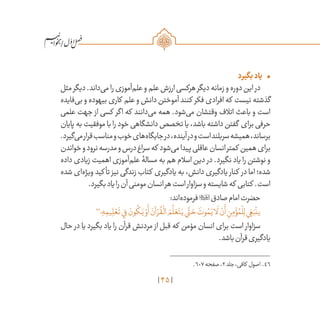 فصل اول از بخواه بیم
• یاد بگیرد
در این دوره و زمانه دیگر هرکسی ارزش علم و علم‌آموزی را می‌داند. دیگر مثل
گذشته نیست که افرادی فکر کنند آموختن دانش و علم کاری بیهوده و بی‌فایده
است و باعث اتلاف وقتشان می‌شود. همه می‌دانند که اگر کسی از جهت علمی
حرفی برای گفتن داشته باشد، یا تخصص دانشگاهی خود را با موفقیت به پایان
برساند، همیشه سربلند است و در آینده، در جایگاه‌های خوب و مناسب قرار می‌گیرد.
برای همین کمتر انسان عاقلی پیدا می‌شود که سراغ درس و مدرسه نرود و خواندن
و نوشتن را یاد نگیرد. در دین اسلام هم به مسألۀ علم‌آموزی اهمیت زیادی داده
شده؛ اما در کنار یادگیری دانش، به یادگیری کتاب زندگی نیز تأکید ویژه‌ای شده
است. کتابی که شایسته و سزاوار است هر انسان مومنی آن را یاد بگیرد.
حضرت امام صادق فرموده‌اند:
یَنْبَغِی لِلْمُؤْمِنِ أَنْ لَا یَمُوتَ حَتَّی یَتَعَلَّمَ الْقُرْآنَ أَوْ یَکُونَ فِی تَعْلِیمِهِ؛
سزاوار است برای انسان مؤمن که قبل از مردنش قرآن را یاد بگیرد یا در حال
یادگیری قرآن باشد.
٤٦. اصول کافی، جلد ۲، صفحه ۶۰۷.
[ ۳۵ ]